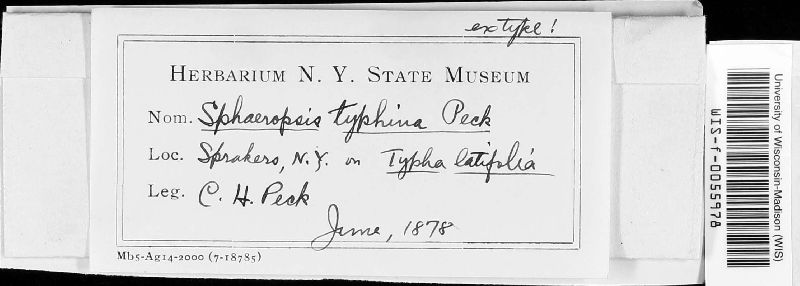 ex type!
HERBARIUM N. Y. STATE MUSEUM
Nom. Sphaeropsis typhina Peck
Loc. Sprakers, N.Y. on Typha latifolia
Leg. C. H. Peck
June, 1878
Mb5-Ag14-2000 (7-18785)
University of Wisconsin-Madison (WIS)
WIS-f-0055978